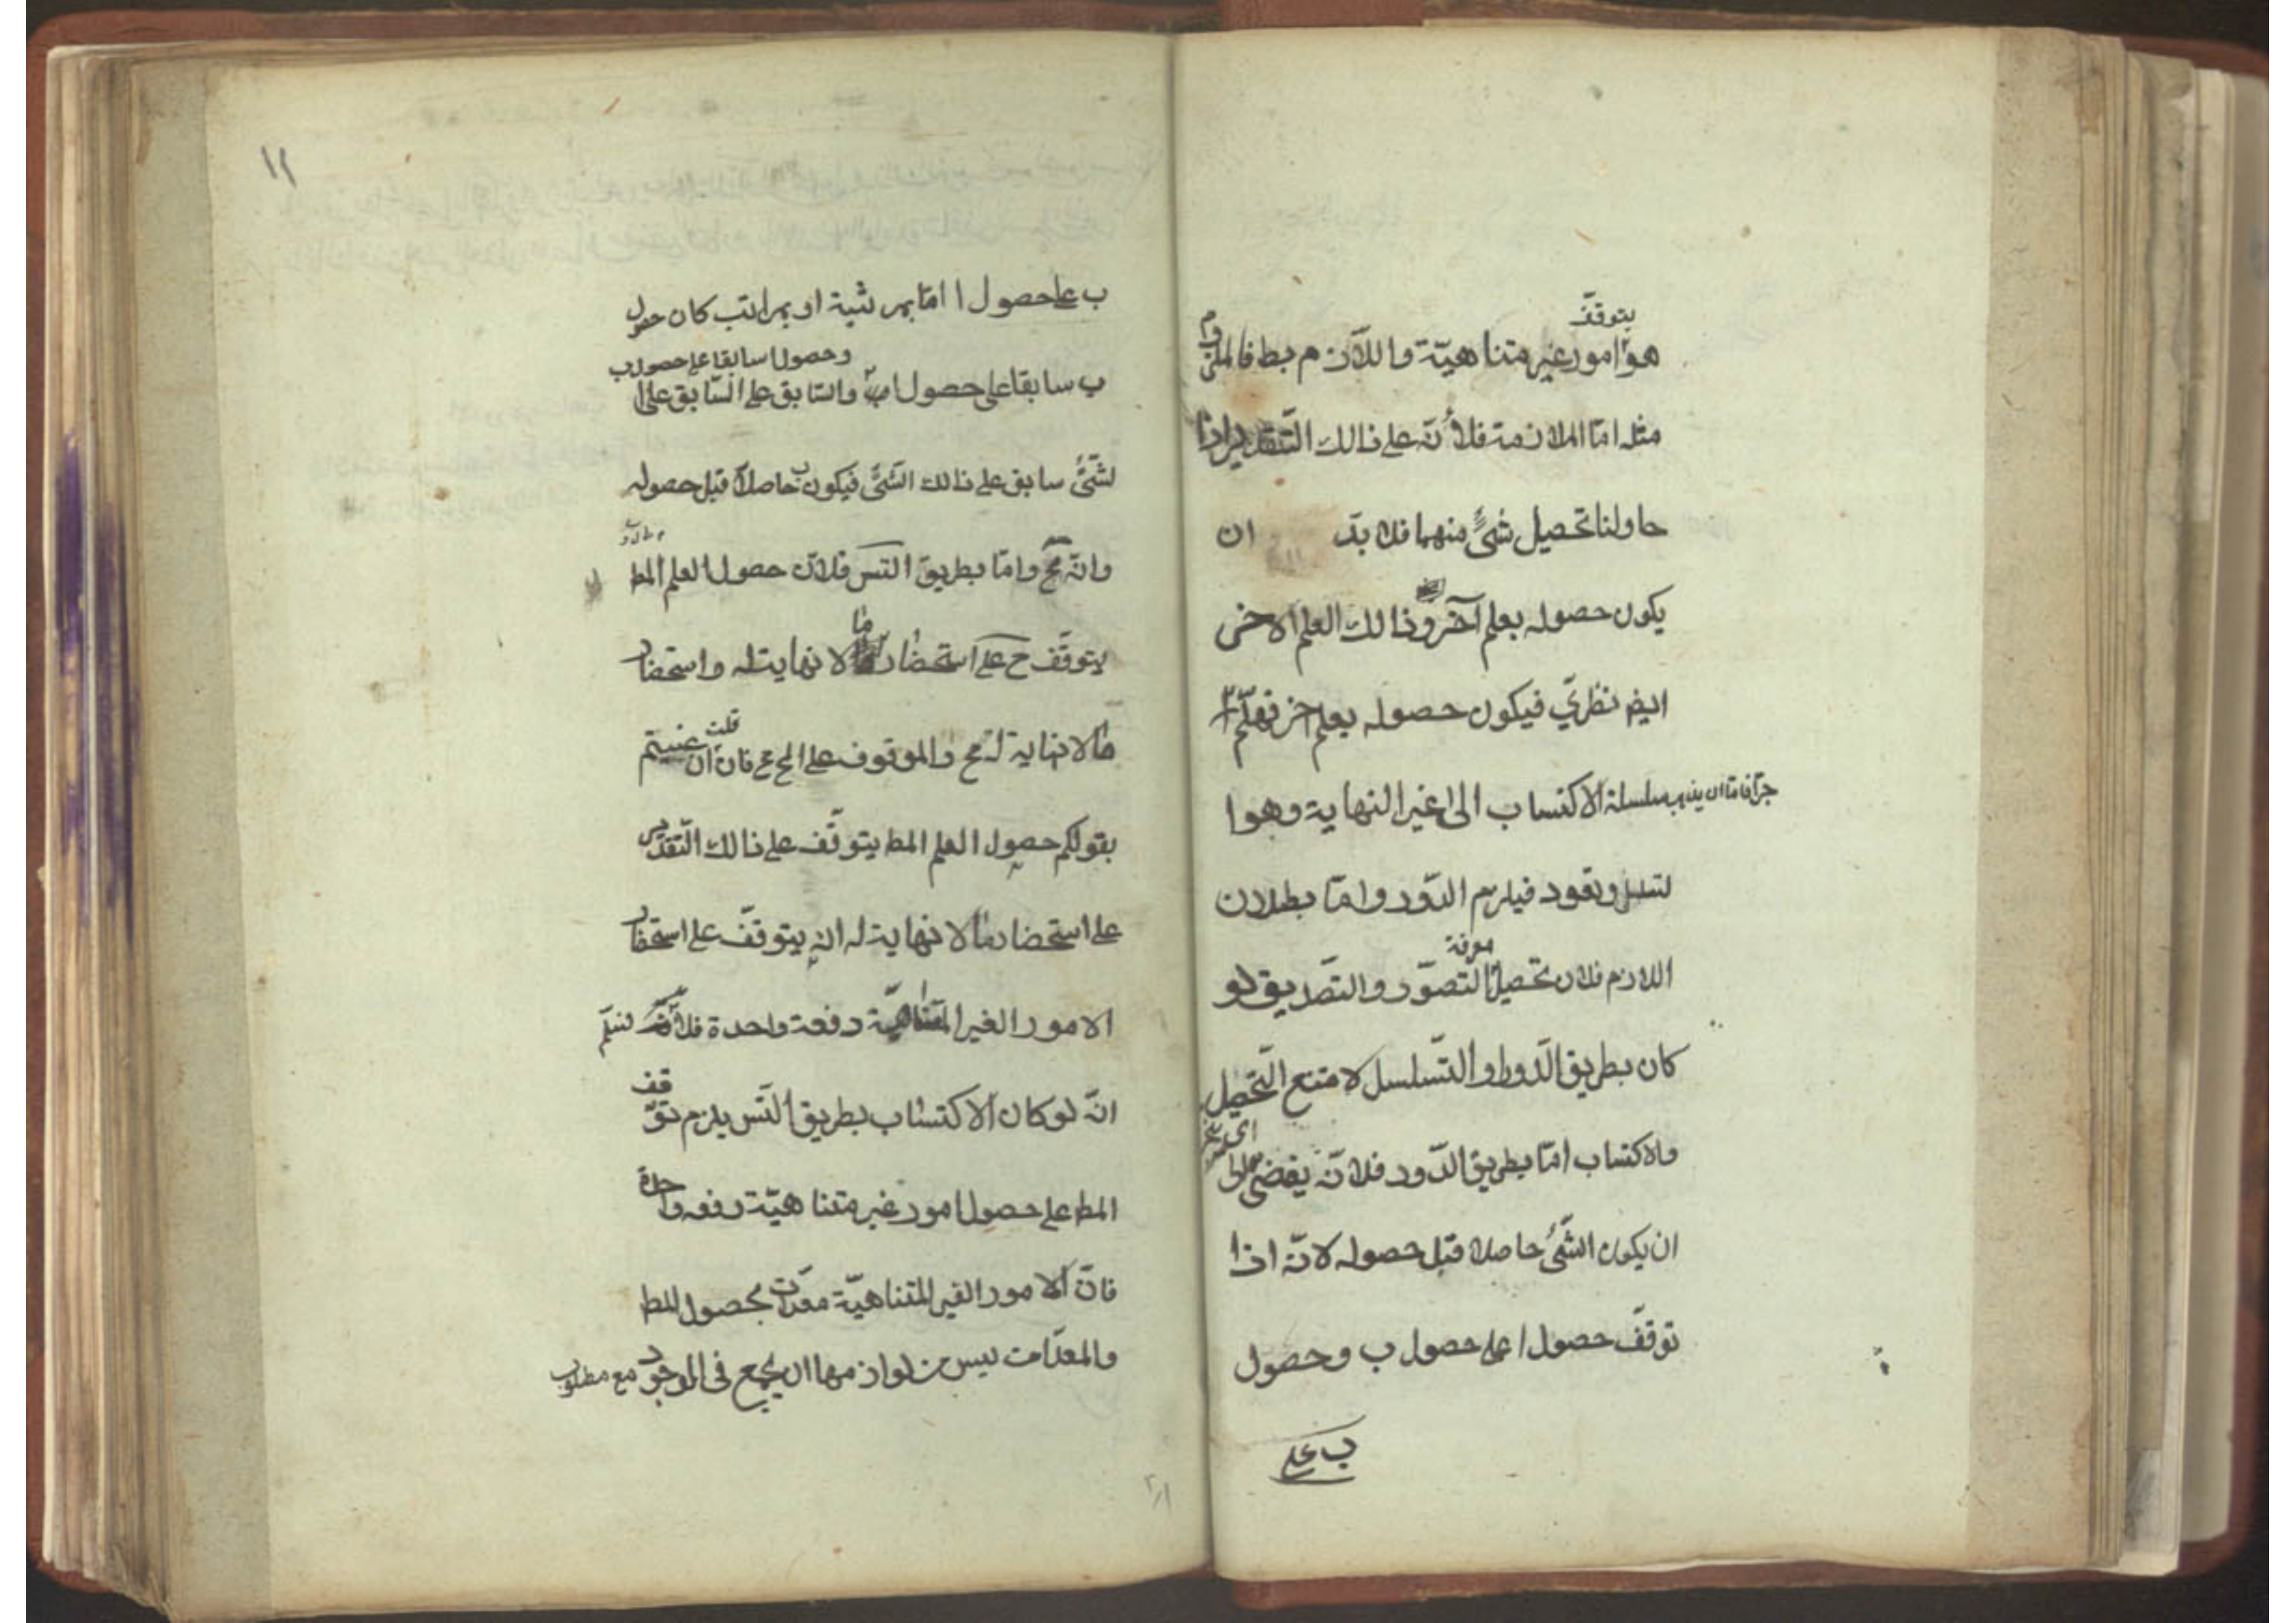 يتوقّف
هو امور غير متناهيّة واللّازم بط فالملزوم
مثله امّا الملازمة فلأنّه على ذالك التّقدير اذا
حاولنا تحصيل شئٍ منهما فلا بدّ ان
يكون حصوله بعلم آخر وذالك العلم الاخر
ايضا نظريّ فيكون حصوله بعلم اخر فهلمّ
جرّا فامّا ان يذهب سلسلة الاكتساب الى غير النهاية وهوا
لتسلسل وتعود فيلزم الدّور وامّا بطلان
معرفة
اللازم فلان تحصيل التصوّر والتصّديق لو
كان بطريق الدّور او التّسلسل لامتنع التّحصيل
والاكتساب امّا بطريق الدّور فلانّه يفضى الى
ان يكون الشّئ حاصلا قبل حصوله لانّه اذا
توقّف حصول ا على حصول ب وحصول
ب على
١٢
ب على حصول ا امّا بمرتبة او بمراتب كان حصول
وحصول ا سابقا على حصول ب
ب سابقا على حصول ا والسّابق على السّابق على ا
لشّئ سابق على ذالك الشّئ فيكون ب حاصلاً قبل حصوله
وانّه مح وامّا بطريق التس فلانّ حصول العلم المط
يتوقّف ح على استحضار ما لا نهايتله واستحضار
ما لا نهاية له مح والموقوف على المح مح فان قلت ان عنيتم
بقولكم حصول العلم المط يتوقّف على ذالك التّقدير
على استحضار ما لا نهاية له انه يتوقّف على استحضار
الامور الغير المتناهيّة دفعة واحدة فلا نسلّم
انّه لو كان الاكتساب بطريق التّس يلزم توقّف
المط على حصول امور غير متناهيّة دفعه واحدة
فانّ الامور الغير المتناهيّة معدّات بحصول المط
والمعدّات ليس من لوازمها ان يجمع فى الوجود مع مطلوب